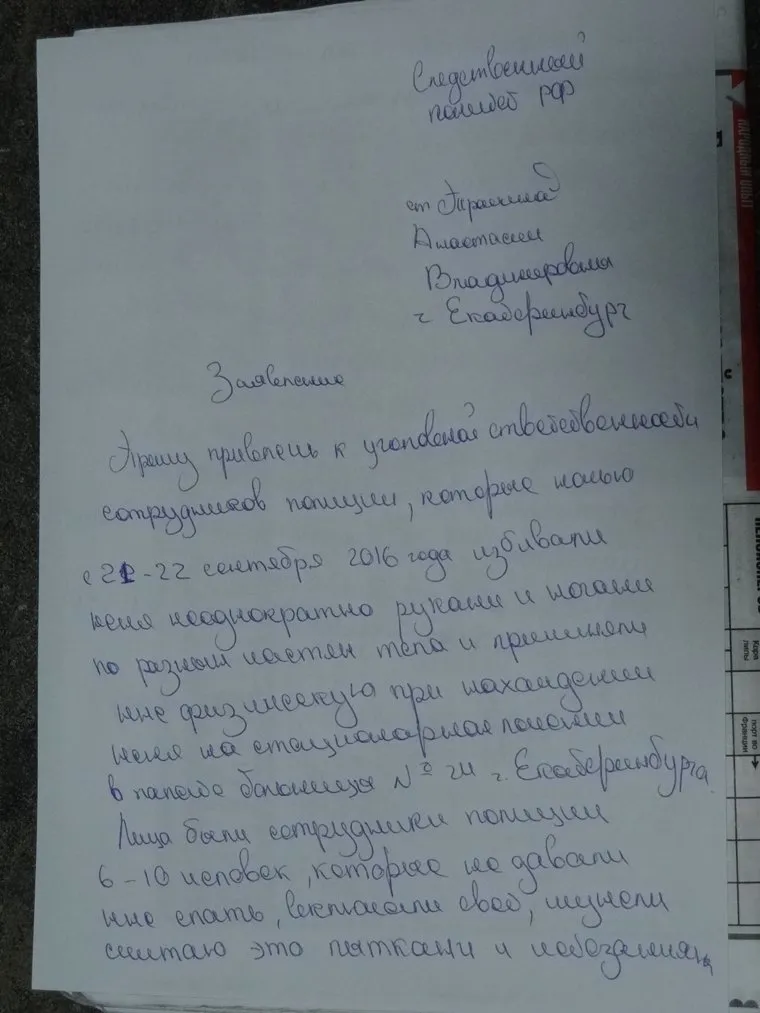 Следственный
комитет РФ
от
Анастасии
Владимировны
г Екатеринбург
Заявление
Прошу привлечь к уголовной ответственности
сотрудников полиции, которые ночью
с 21-22 сентября 2016 года избивали
меня неоднократно руками и ногами
по разным частям тела и причиняли
мне физическую при нахождении
меня на стационарной помощи
в палате больницы № 24 г. Екатеринбурга.
Лица были сотрудники полиции
6-10 человек, которые не давали
мне спать, включали свет, шумели
считаю это пытками и
НАРОДНЫЙ ОПЫТ